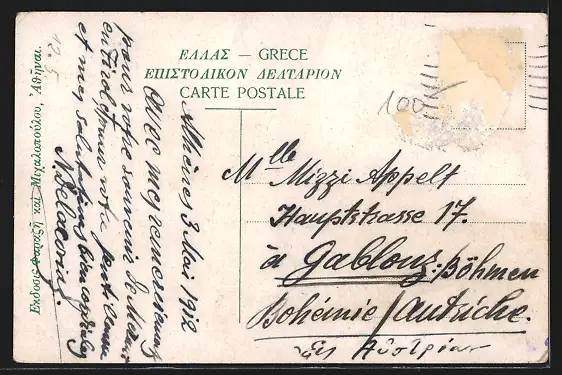 ΕΛΛΑΣ — GRECE
ΕΠΙΣΤΟΛΙΚΟΝ ΔΕΛΤΑΡΙΟΝ
CARTE POSTALE
Εκδοσις Φαραζή και Μιχαλοπούλου, Ἀθῆναι.
12.5
100
Athènes 3 Mai 1912
Avec mes remerciements
pour votre souvenir de Meran
en Tirol pour votre
et mes salutations bien
N.
Mlle Mizzi Appelt
Hauptstrasse 17.
à Gablonz. Böhmen
Bohémie / Autriche.
Εις Αὐστρίαν